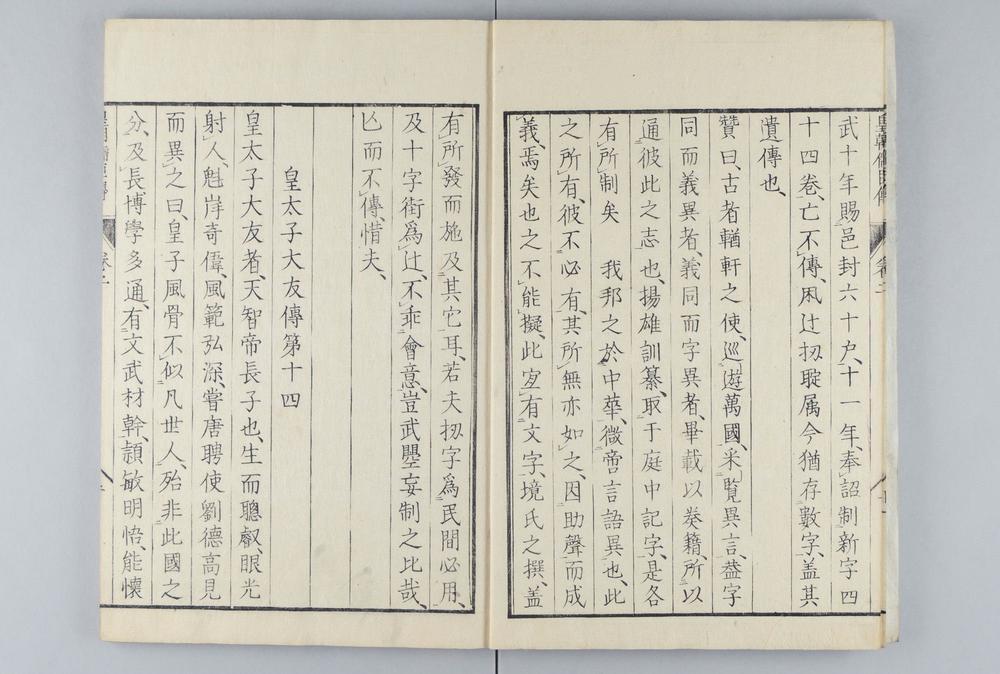 武十年賜邑封六十戸、十一年、奉詔制新字四
十四卷、亡不傳、凩辻扨聢属今猶存數字、盖其
遺傳也、
贊曰、古者輶軒之使、巡遊萬國、采覧異言、葢字
同而義異者、義同而字異者、畢載以奏籍、所以
通彼此之志也、揚雄訓纂、取于庭中記字、是各
有所制矣　我邦之於中華、微啻言語異也、此
之所有、彼不必有、其所無亦如之、因助聲而成
義、焉矣也之不能擬、此宜有文字、境氏之撰、盖
有所發而施及其它耳、若夫扨字爲民間必用、
及十字街爲辻、不乖會意、豈武曌妄制之比哉、
亾而不傳、惜夫、
皇太子大友傳第十四
皇太子大友者、天智帝長子也、生而聰叡、眼光
射人、魁岸奇偉、風範弘深、嘗唐聘使劉德高見
而異之曰、皇子風骨不似凡世人、殆非此國之
分、及長博學多通、有文武材幹、頴敏明悟、能懷